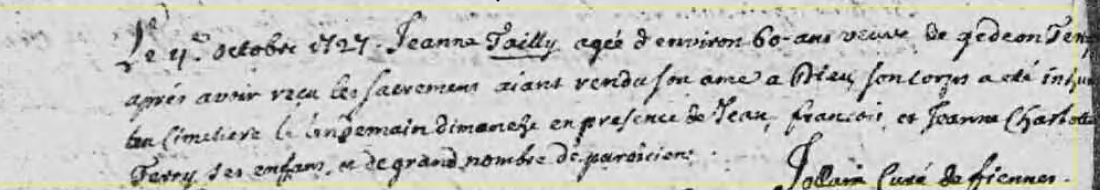 Le 4e. octobre 1727. Jeanne Tailly ageé d'environ 60 ans veuve de gedeon
aprés avoir reçu les sacremens aiant rendu son ame a Dieu, son corps a eté
cimetiere le lendemain dimanche en presence de Jean, francois, et Jeanne Charlotte
Ferry ses enfans, et de grand nombre de paroiciens.
Jollain Curé de fiennes.